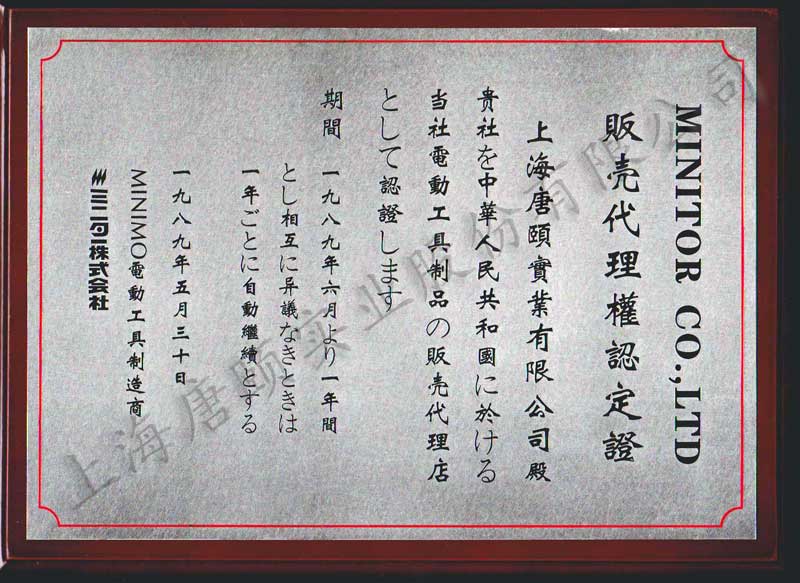 MINITOR CO.,LTD
販売代理權認定證
上海唐頤實業有限公司殿
貴社を中華人民共和國に於ける
当社電動工具制品の販売代理店
として認證します
期間 一九八九年六月より一年間
とし相互に异議なきときは
一年ごとに自動繼續とする
一九八九年五月三十日
MINIMO電動工具制造商
ミニター株式会社
上海唐颐实业股份有限公司